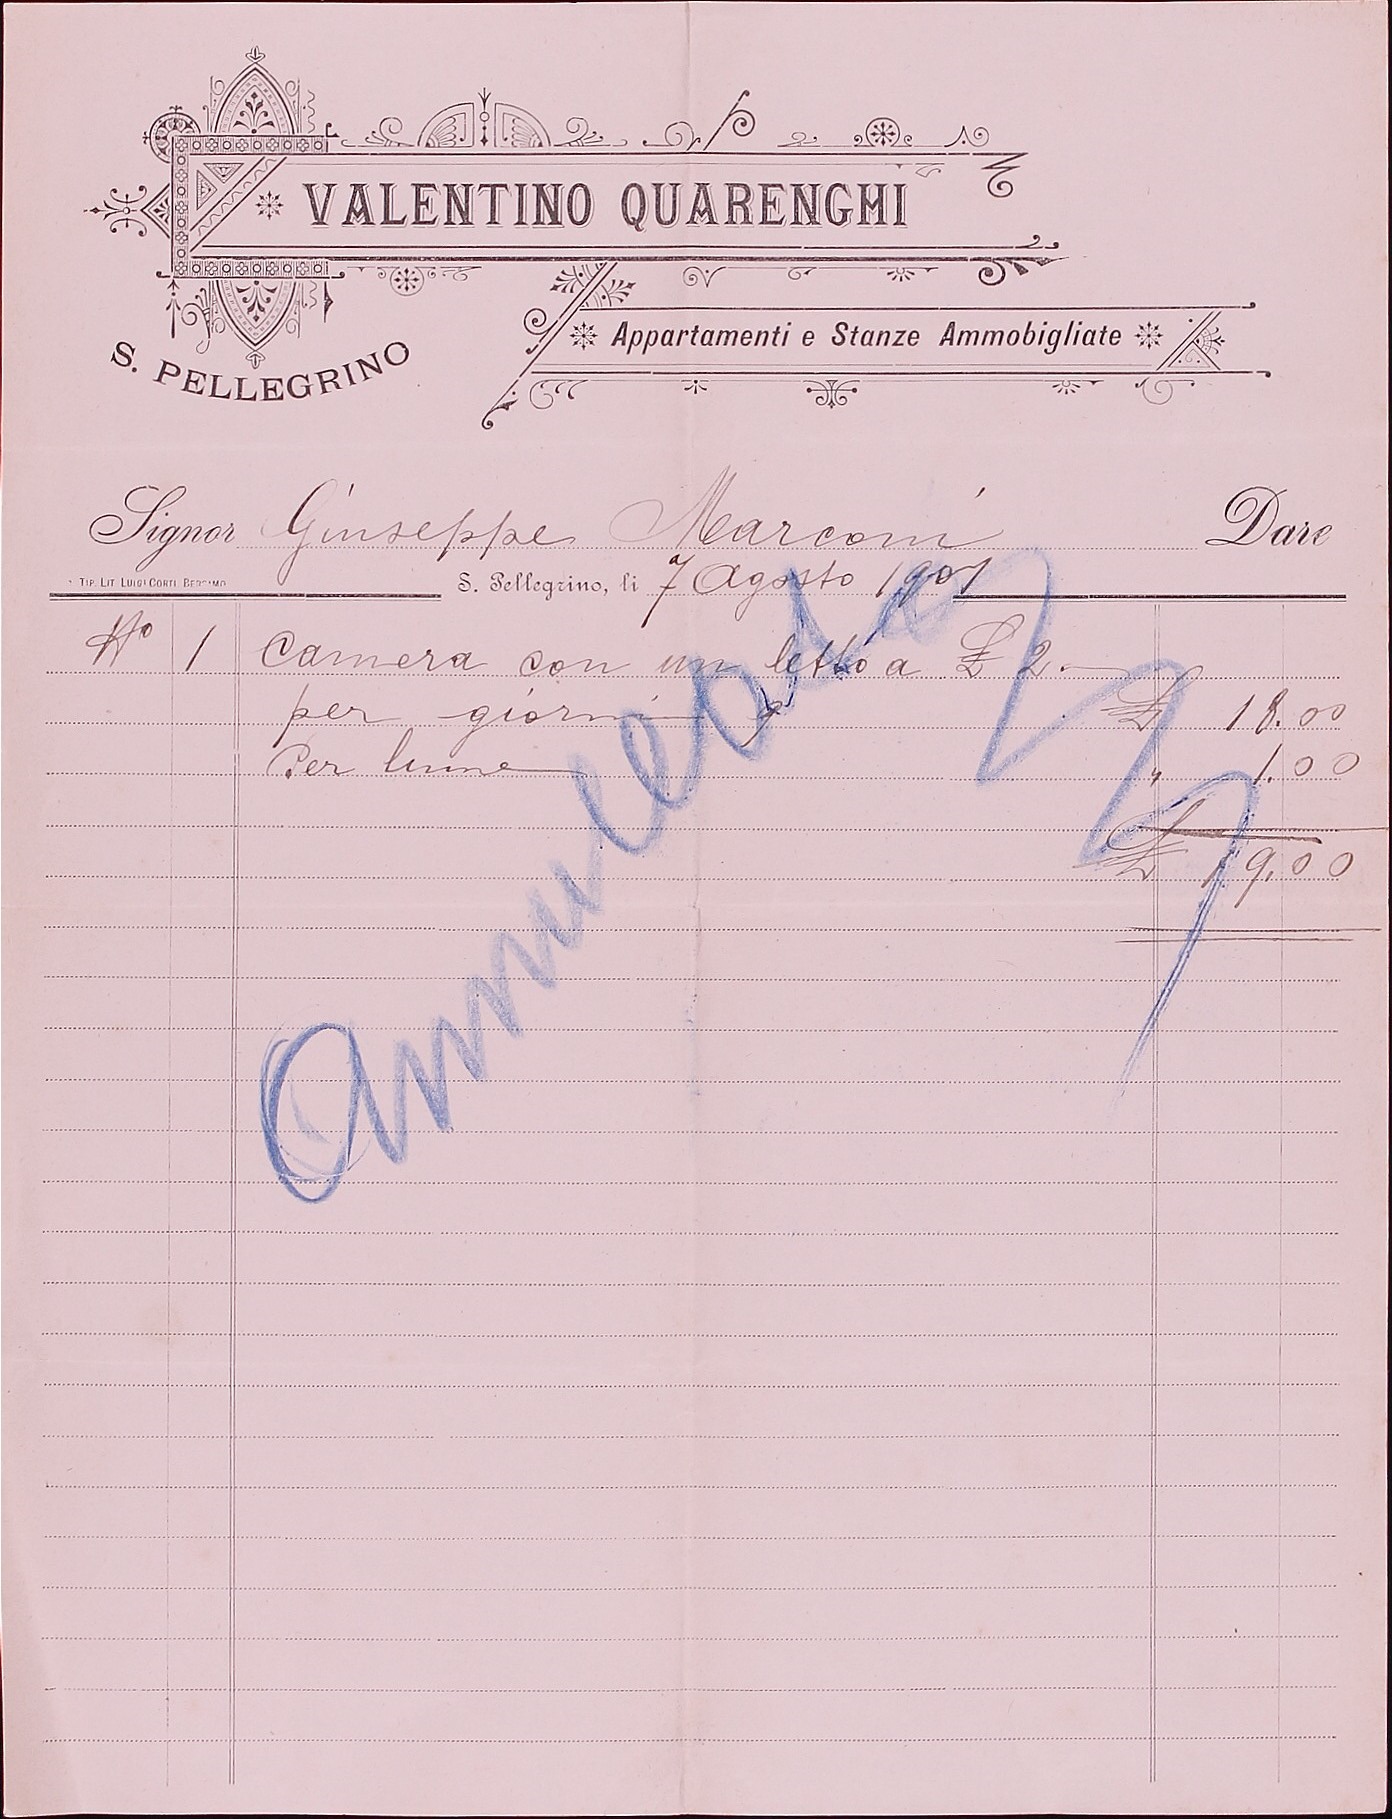 VALENTINO QUARENGHI
Appartamenti e Stanze Ammobigliate
S. PELLEGRINO
Signor Giuseppe Marconi Dare
TIP. LIT. LUIGI CORTI, BERGAMO
S. Pellegrino, li 7 Agosto 1901
N° 1 Camera con un letto a £ 2.
per giorni 9 £ 18.00
Per lume " 1.00
£ 19.00
Annullata